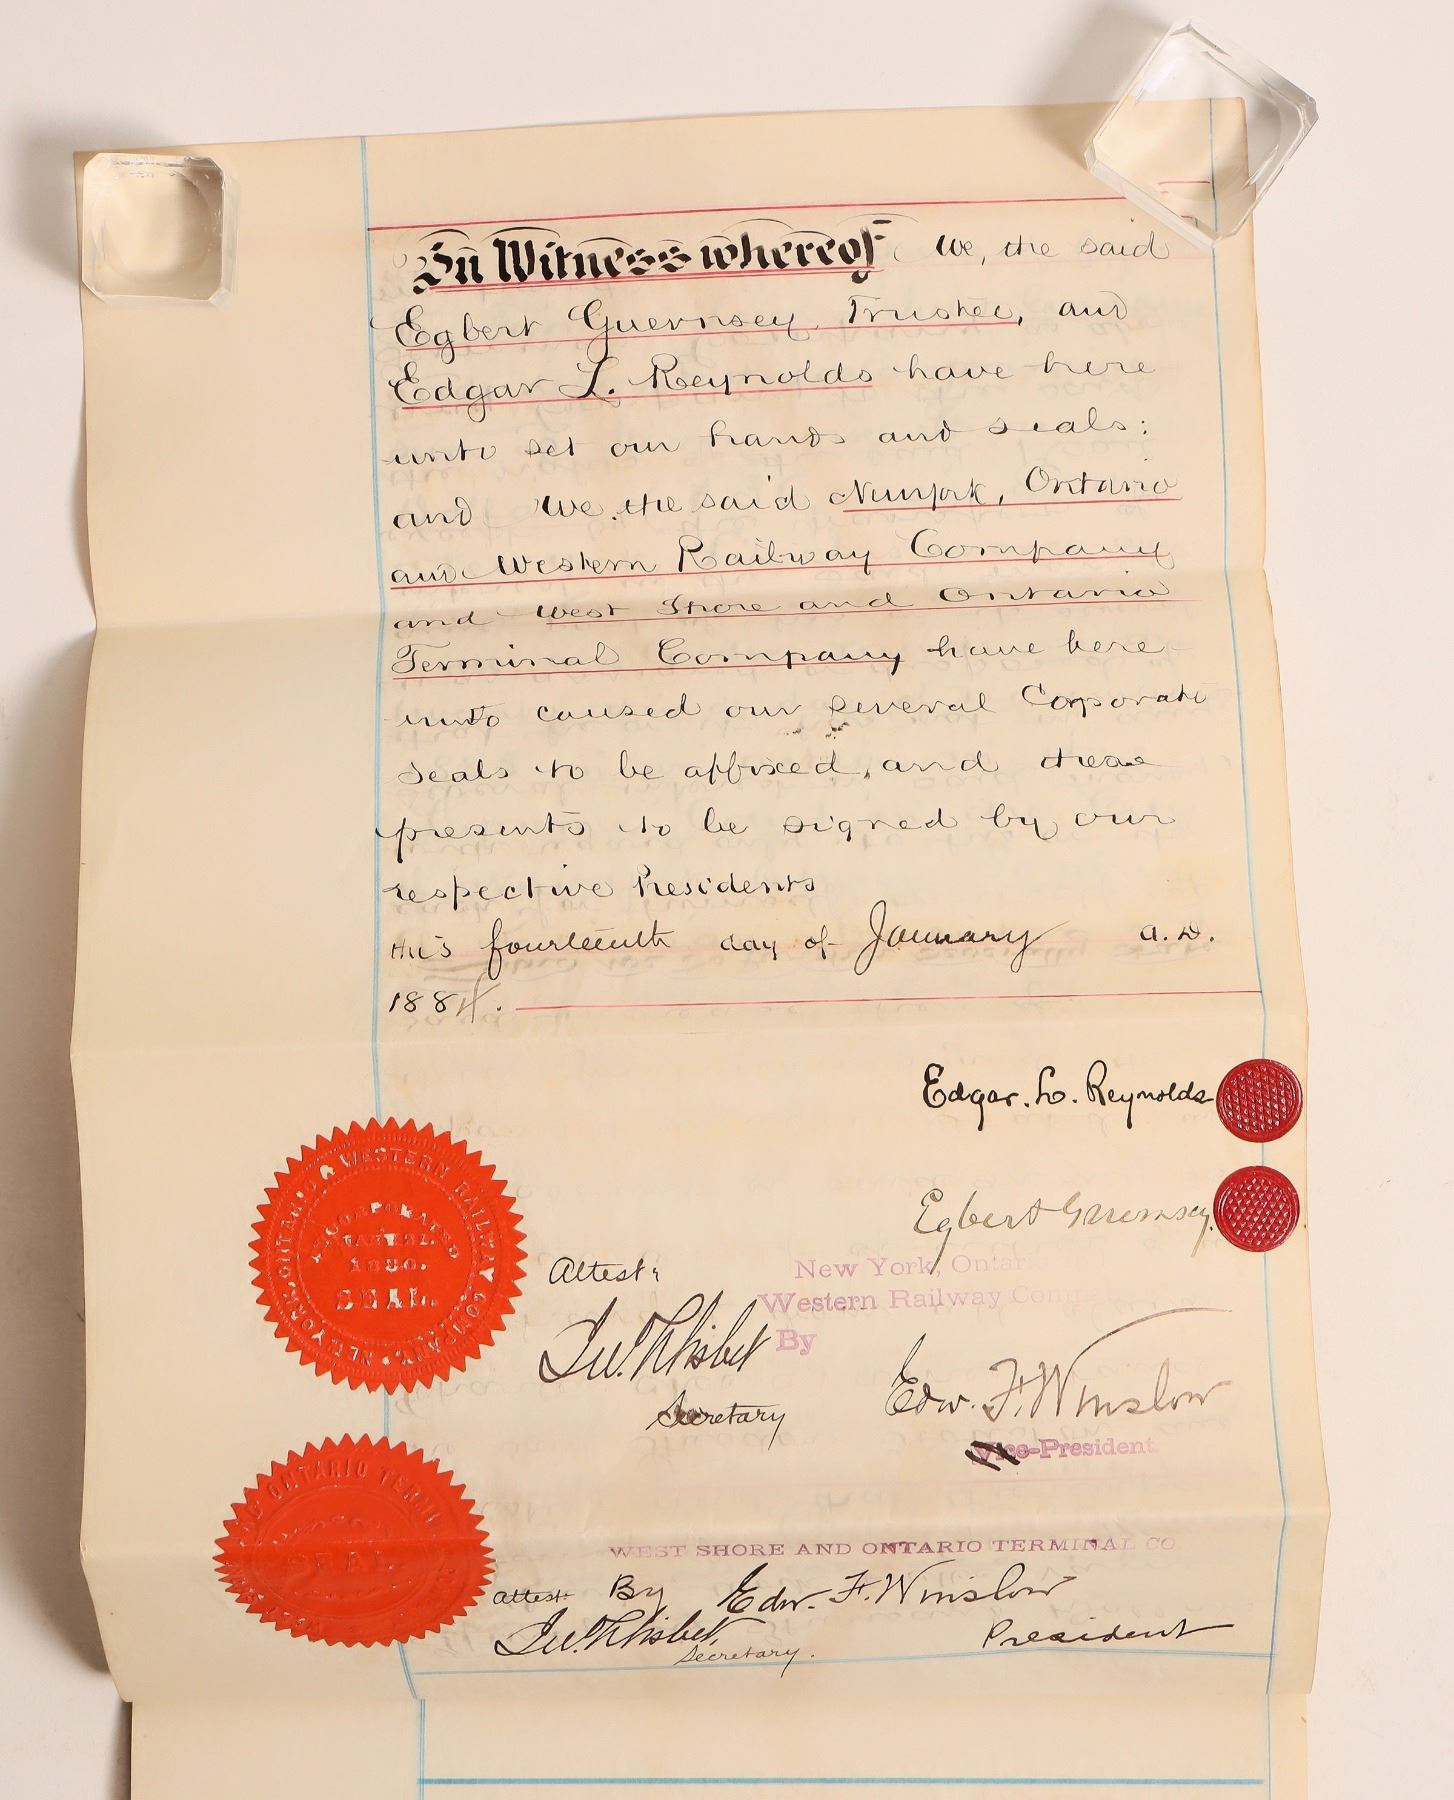 In Witness whereof We, the said
Egbert Guernsey Trustee, and
Edgar L. Reynolds have here
unto set our hands and seals:
and We, the said New York, Ontario
and Western Railway Company
and West Shore and Ontario
Terminal Company have here
unto caused our several Corporate
seals to be affixed, and these
presents to be signed by our
respective Presidents
this fourteenth day of January A.D.
1884.
Edgar. L. Reynolds
Egbert Guernsey.
NEW YORK, ONTARIO & WESTERN RAILWAY COMPANY.
INCORPORATED
1880.
SEAL.
Attest:
New York, Ontar
Western Railway Com
By
Secretary
Edw. F. Winslow
Vice-President
ONTARIO TERMI
SEAL
WEST SHORE AND ONTARIO TERMINAL CO
Attest By Edw. F. Winslow
Secretary.
President